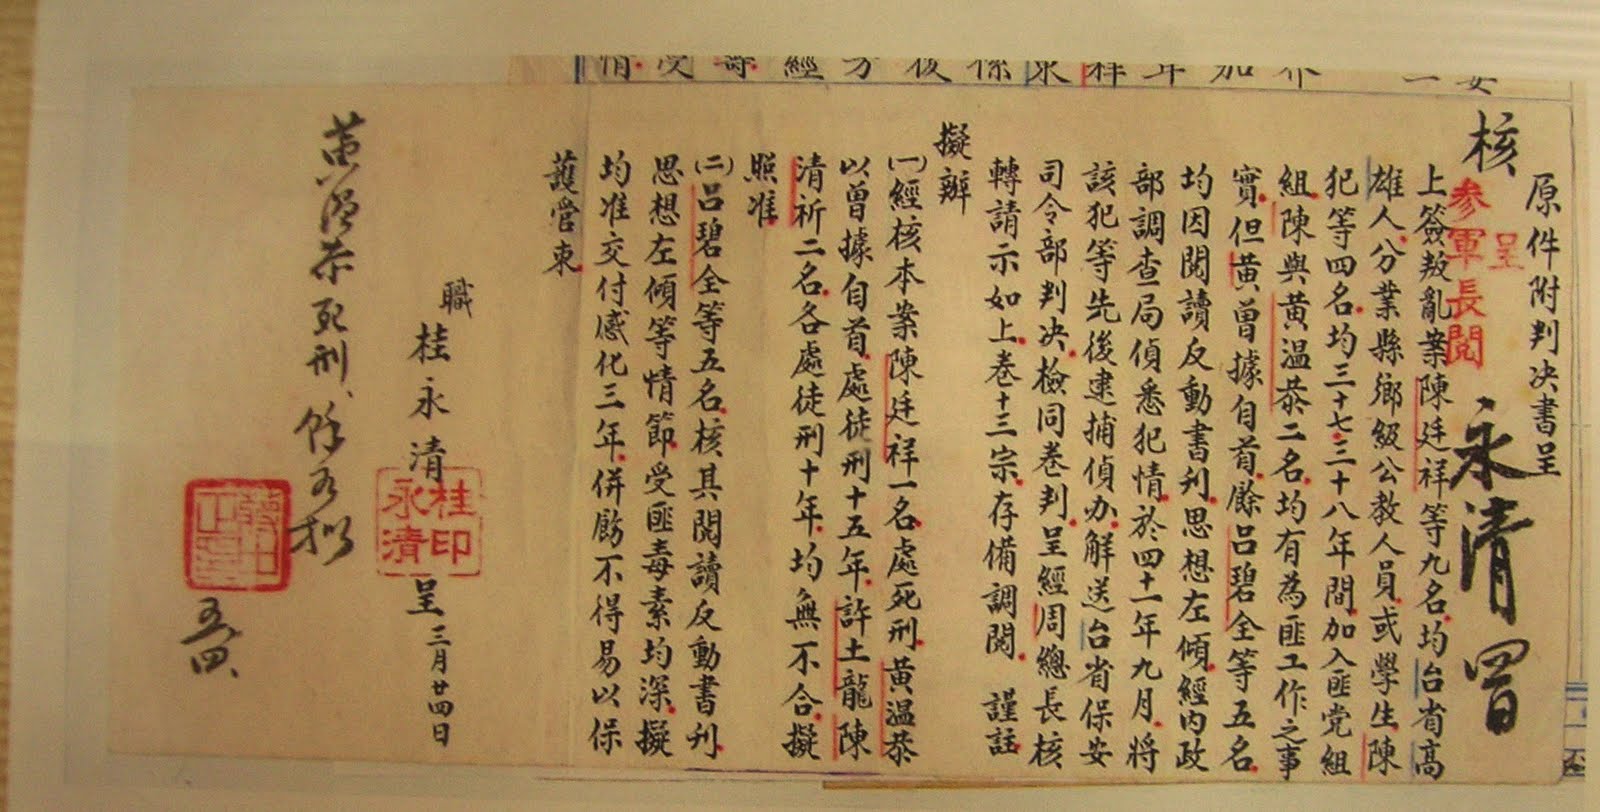 原件附判决書呈
核
呈
參軍長閱
永清 四日
上簽叛亂案陳廷祥等九名均台省高
雄人分業縣鄉級公教人員或學生陳
犯等四名均三十七三十八年間加入匪党組
組陳與黃温恭二名均有為匪工作之事
實但黃曾據自首餘呂碧全等五名
均因閱讀反動書刋思想左傾經內政
部調查局偵悉犯情於四十一年九月將
該犯等先後逮捕偵办解送台省保安
司令部判决檢同卷判呈經周總長核
轉請示如上卷十三宗存備調閱 謹註
擬辦
㈠經核本案陳廷祥一名處死刑黃温恭
以曾據自首處徒刑十五年許土龍陳
清祈二名各處徒刑十年均無不合擬
照准
㈡呂碧全等五名核其閱讀反動書刋
思想左傾等情節受匪毒素均深擬
均准交付感化三年併飭不得易以保
護管束
職 桂永清 呈 三月廿四日
桂永清印
黃温恭死刑、餘如擬
五、四、